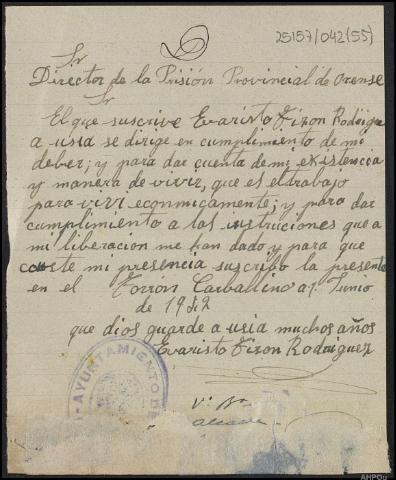 25157/042(55)
Sr
Director de la Prisión Provincial de Orense
Sr
El que suscrive Evaristo Tizon Rodrigue
a usia se dirige en cumplimiento de mi
deber; y para dar cuenta de mi existencia
y manera de vivir, que es el trabajo
para vivi econmicamente; y para dar
cumplimiento a las instruciones que a
mi liberacion me han dado y para que
conste mi presencia suscribo la presente
en el Torron Carballino a 1 Junio
de 1942
que dios guarde a usia muchos años
Evaristo Tizon Rodriguez
AYUNTAMIENTO DE
V.º Bº
alcalde
AHPOu